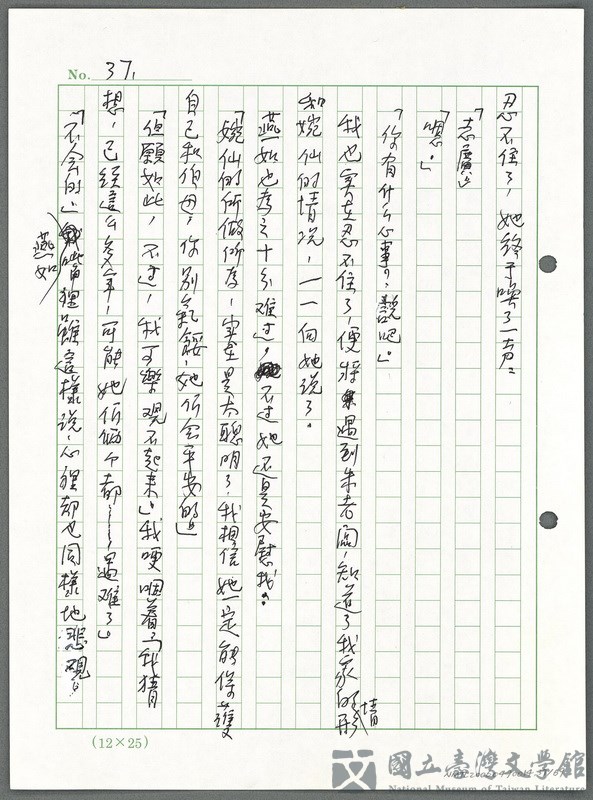 No. 37,
忍不住了，她終于喚了一声：
「志廣」
「嗯。」
「你有什么心事？說吧。」
我也实在忍不住了，便將遇到朱老闆，知道了我家的情形
和婉仙的情况，一一向她说了。
燕如也为之十分难过，不过她还是安慰我：
「婉仙的所做所为，实在是太聪明了，我想信她一定能保護
自己和伯母，你别氣餒，她们会平安的」
「但願如此，不过，我可樂观不起来。」我哽咽着，「我猜
想，已經這么多年，可能她们俩个都……遇难了」
「不会的」燕如嘴狸雖這樣说，心狸却也同樣地悲觀！
(12×25)
國立臺灣文學館
National Museum of Taiwan Literature